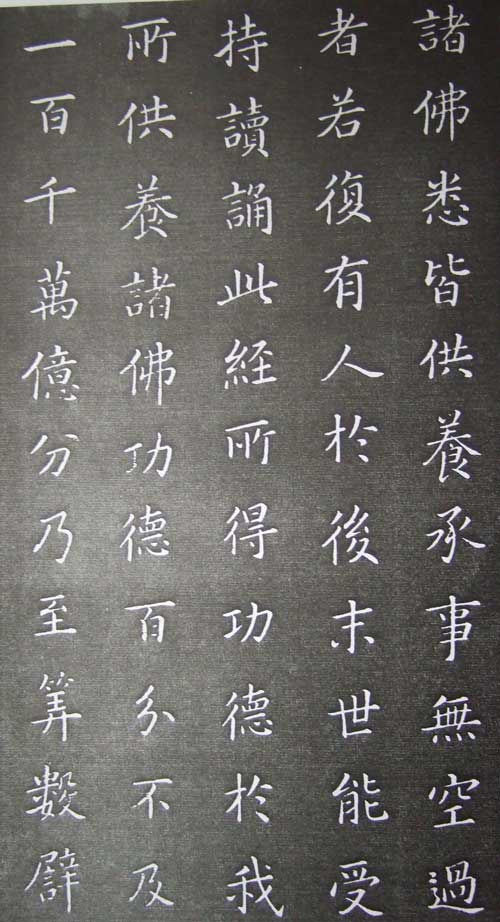 諸佛悉皆供養承事無空過
者若復有人於後末世能受
持讀誦此經所得功德於我
所供養諸佛功德百分不及
一百千萬億分乃至筭數譬